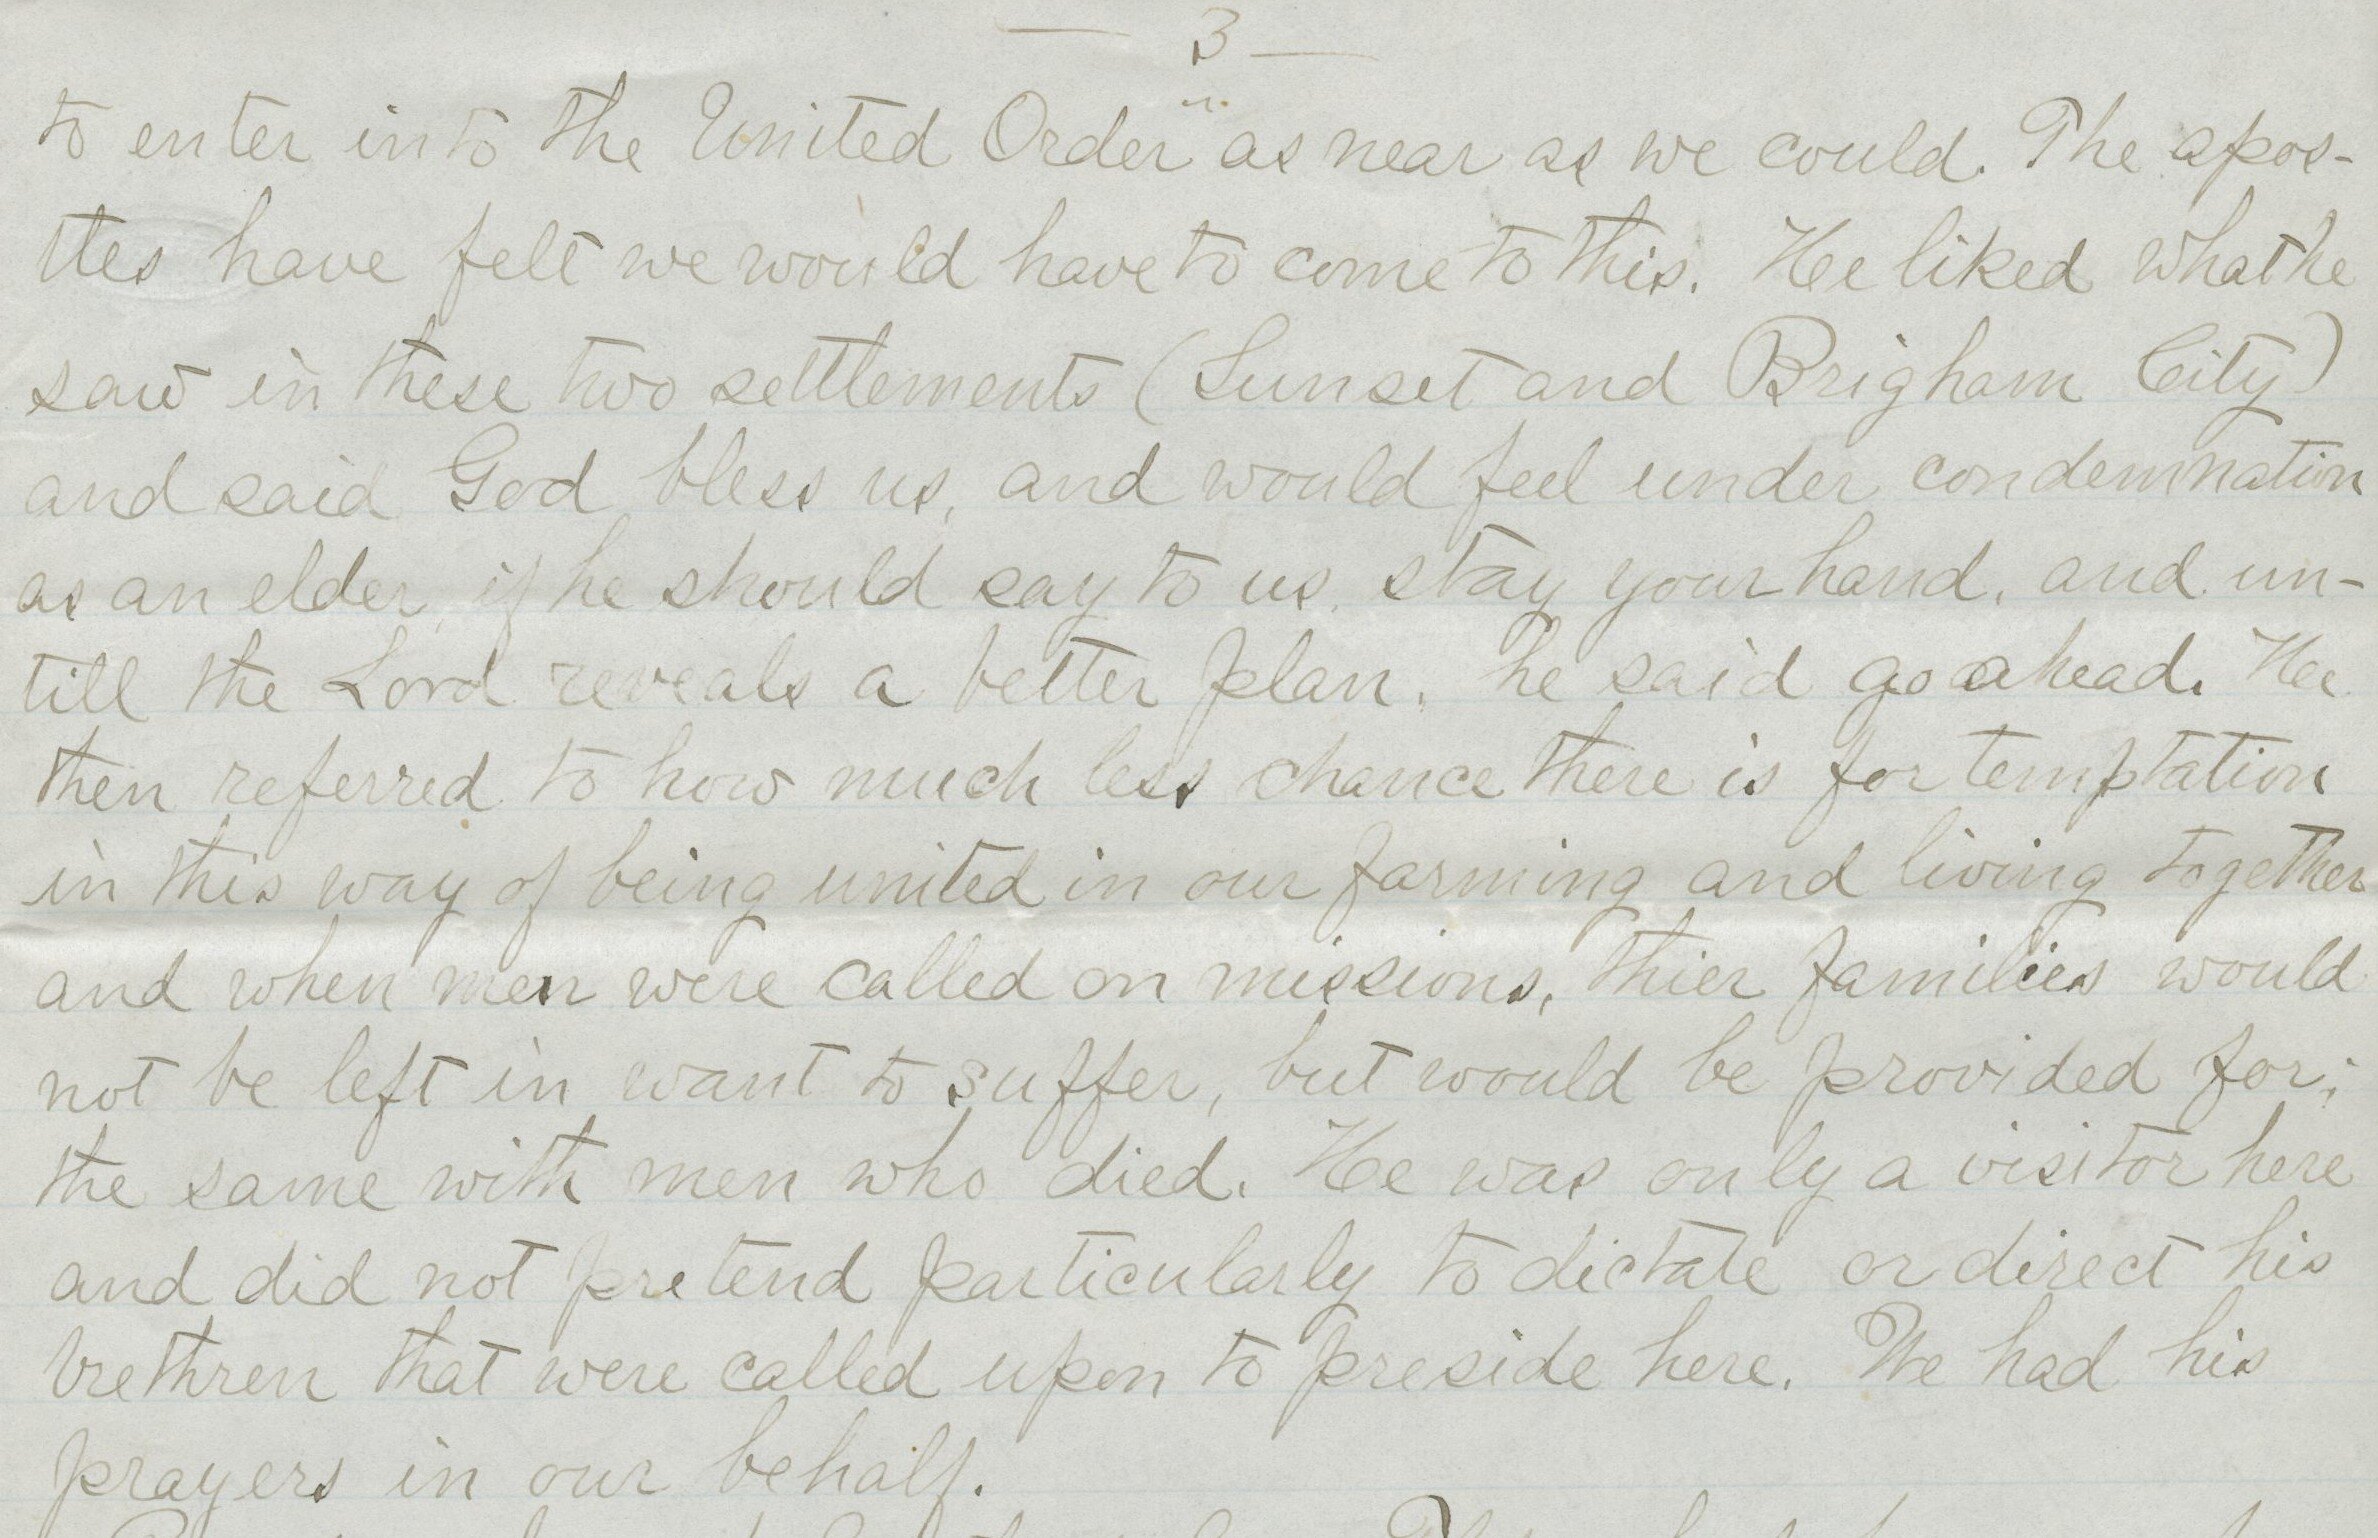 — 3 —
to enter into the United Order" as near as we could. The apos-
tles have felt we would have to come to this. He liked what he
saw in these two settlements (Sunset and Brigham City)
and said God bless us, and would feel under condemnation
as an elder, if he should say to us, stay your hand, and un-
till the Lord reveals a better plan, he said go ahead. He
then referred to how much less chance there is for temptation
in this way of being united in our farming and living together
and when men were called on missions, thier families would
not be left in want to suffer, but would be provided for;
the same with men who died. He was only a visitor here
and did not pretend particularly to dictate or direct his
brethren that were called upon to preside here. We had his
prayers in our behalf.